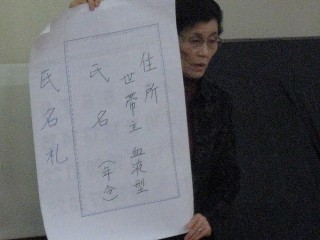 住所
世帯主 血液型
氏名 (年令)
氏名札